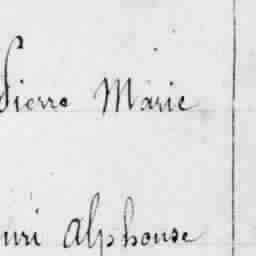 Pierre Marie
enri Alphonse